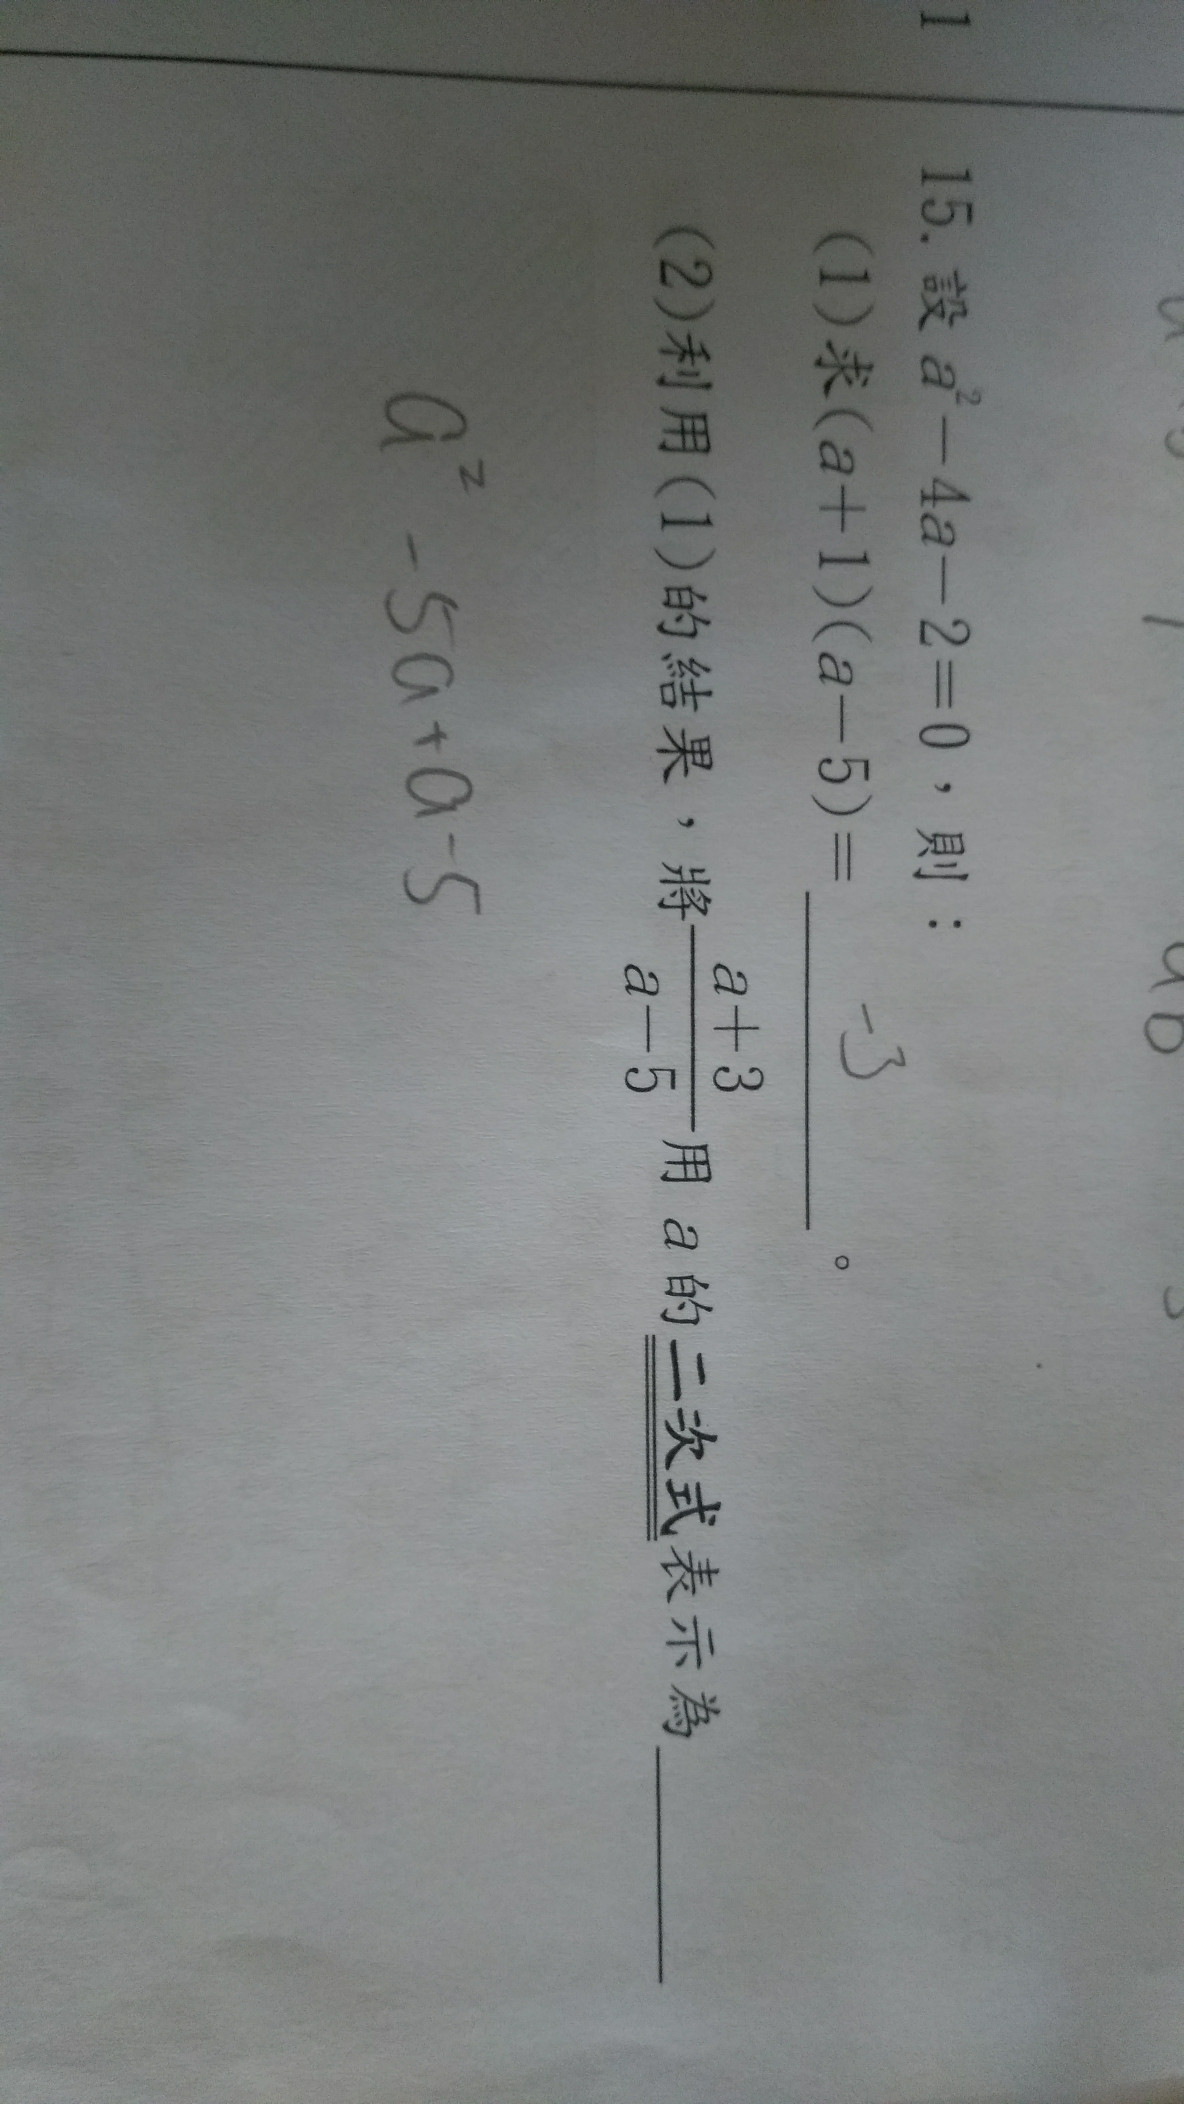 1
15. 設 a²－4a－2＝0，則：
(1)求(a＋1)(a－5)＝ -3 。
(2)利用(1)的結果，將 a＋3
a－5 用 a 的二次式表示為
a² -5a+a-5